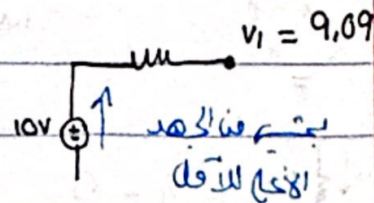 V₁ = 9,09
10V
يمشي من الجهد
الأعلى للأقل